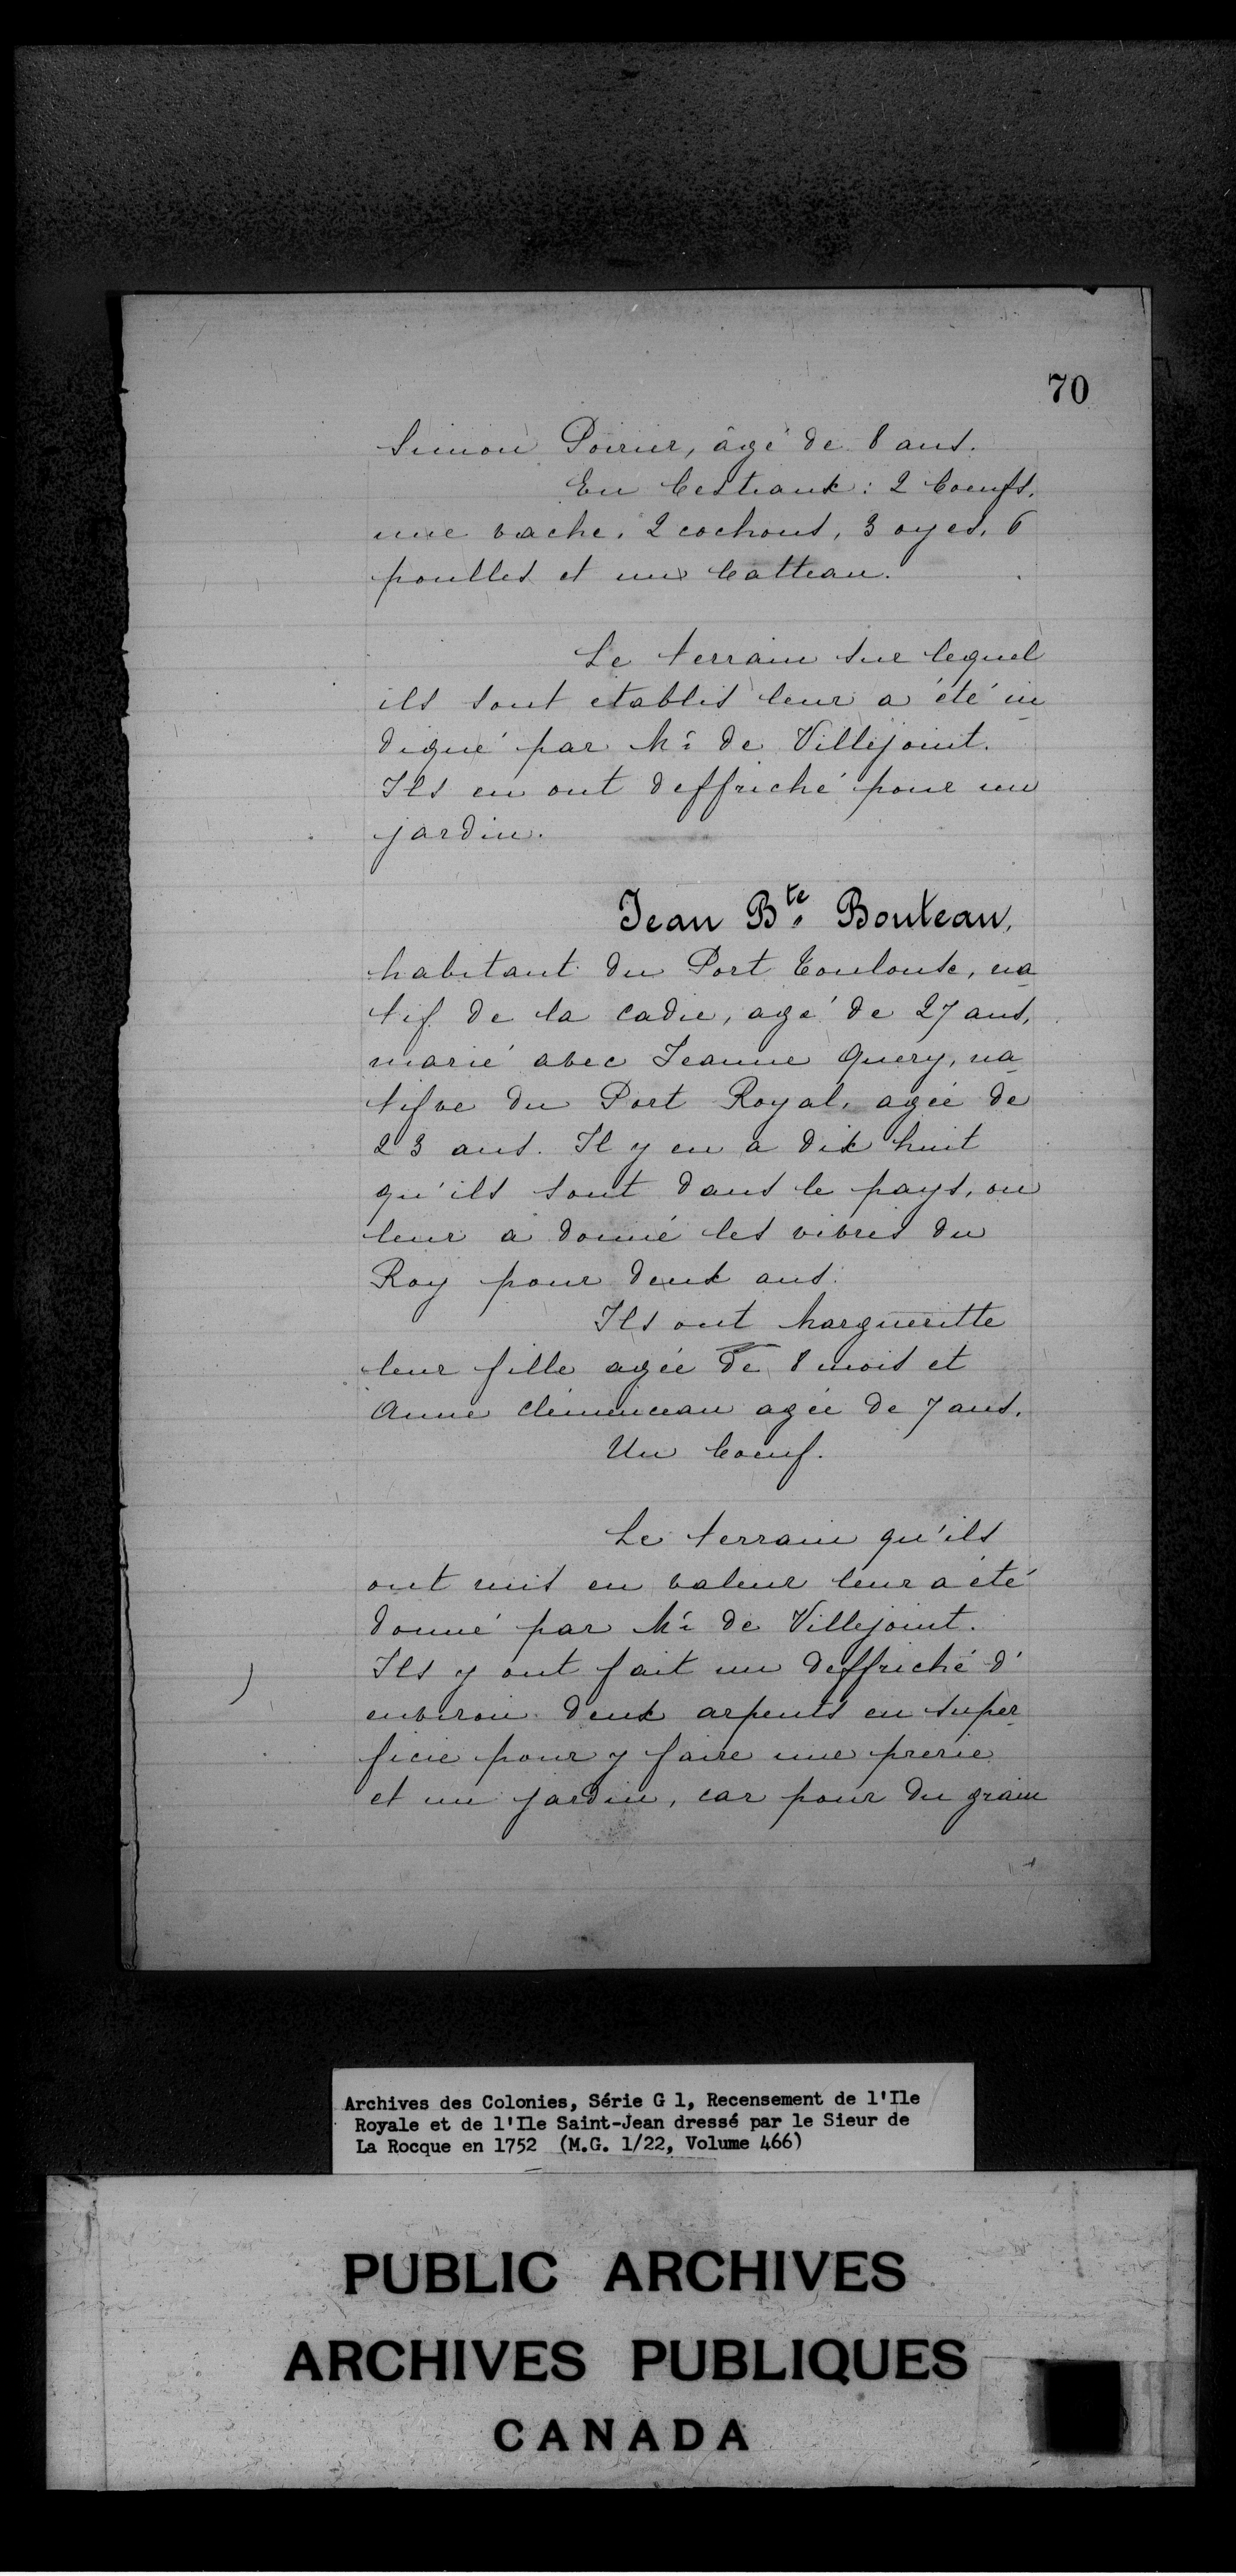 70
Simon Poirier, âgé de 8 ans.
En bestiaux : 2 boeufs,
une vache, 2 cochons, 3 oyes, 6
poulles et un batteau.
Le terrain sur lequel
ils sont etablis leur a été in
diqué par Mr. de Villejoint.
Ils en ont deffriché pour un
jardin.
Jean Bte. Bouteau,
habitant du Port Toulouse, na
tif de la cadie, agé de 27 ans,
marié avec Jeanne Query, na
tifve du Port Royal, agée de
23 ans. Il y en a dix huit
qu'ils sont dans le pays, on
leur a donné les vivres du
Roy pour deux ans.
Ils ont Margueritte
leur fille agée de 8 mois et
Anne Clémenceau agée de 7 ans.
Un boeuf.
Le terrain qu'ils
ont mis en valeur leur a été
donné par Mr. de Villejoint.
Ils y ont fait un deffriché d'
environ deux arpents en super
ficie pour y faire une prerie
et un jardin, car pour du grain
Archives des Colonies, Série G 1, Recensement de l'Ile
Royale et de l'Ile Saint-Jean dressé par le Sieur de
La Rocque en 1752 (M.G. 1/22, Volume 466)
PUBLIC ARCHIVES
ARCHIVES PUBLIQUES
CANADA